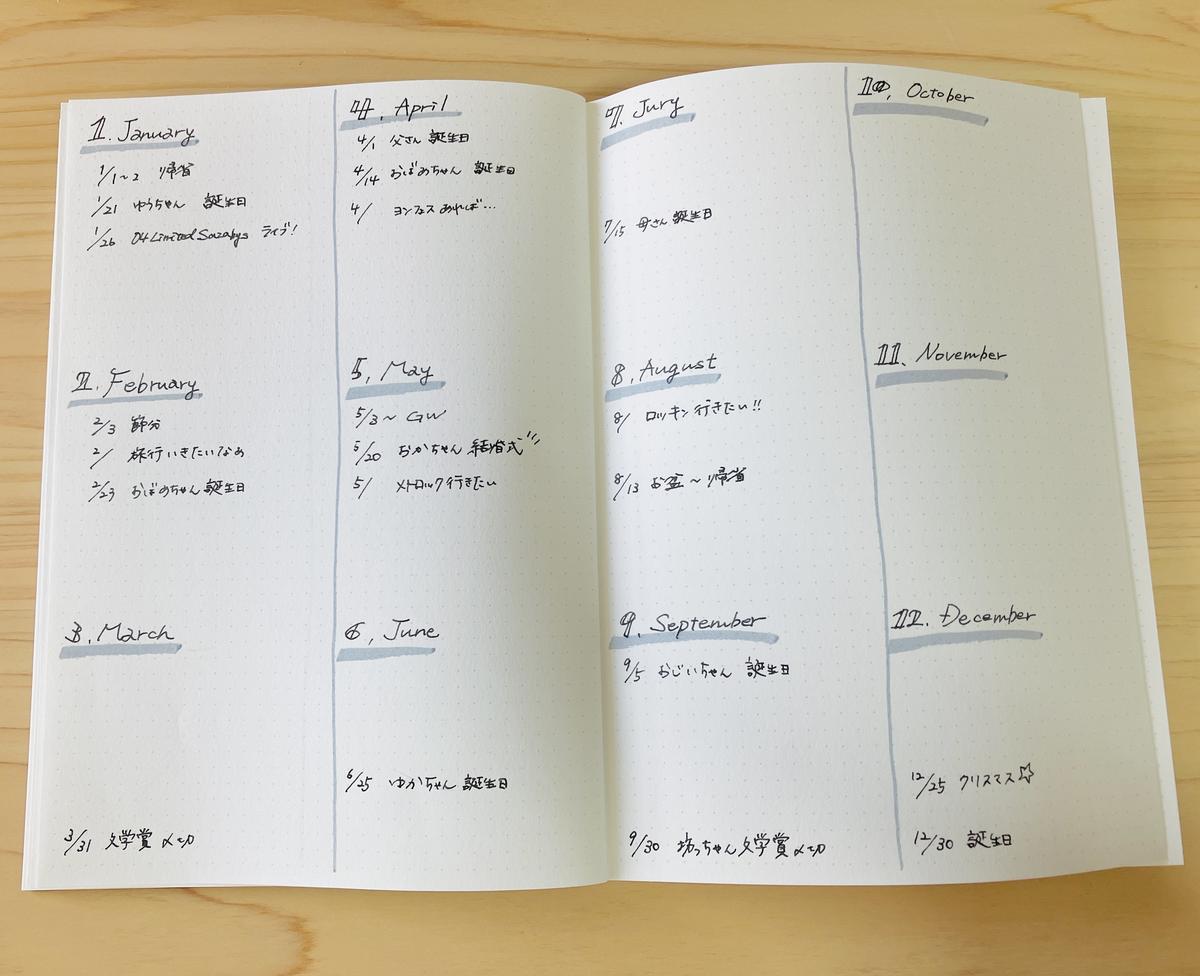 1. January
1/1~2 帰省
1/21 ゆうちゃん 誕生日
1/26 04 Limited Sazabys ライブ!
2. February
2/3 節分
2/ 旅行いきたいなぁ
2/23 おばあちゃん 誕生日
3. March
3/31 文学賞 〆切
4. April
4/1 父さん 誕生日
4/14 おばあちゃん 誕生日
4/ ヨンフェス あれば…
5. May
5/3~ GW
5/20 おかちゃん 結婚式
5/ メトロック行きたい
6. June
6/25 ゆかちゃん 誕生日
7. Jury
7/15 母さん 誕生日
8. August
8/ ロッキン行きたい!!
8/13 お盆~帰省
9. September
9/5 おじいちゃん 誕生日
9/30 坊っちゃん文学賞〆切
10. October
11. November
12. December
12/25 クリスマス☆
12/30 誕生日